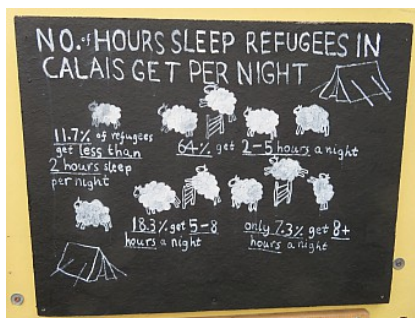 NO. of HOURS SLEEP REFUGEES IN
CALAIS GET PER NIGHT
11.7% of refugees
get less than
2 hours sleep
per night
64% get 2-5 hours a night
18.3% get 5-8
hours a night
only 7.3% get 8+
hours a night